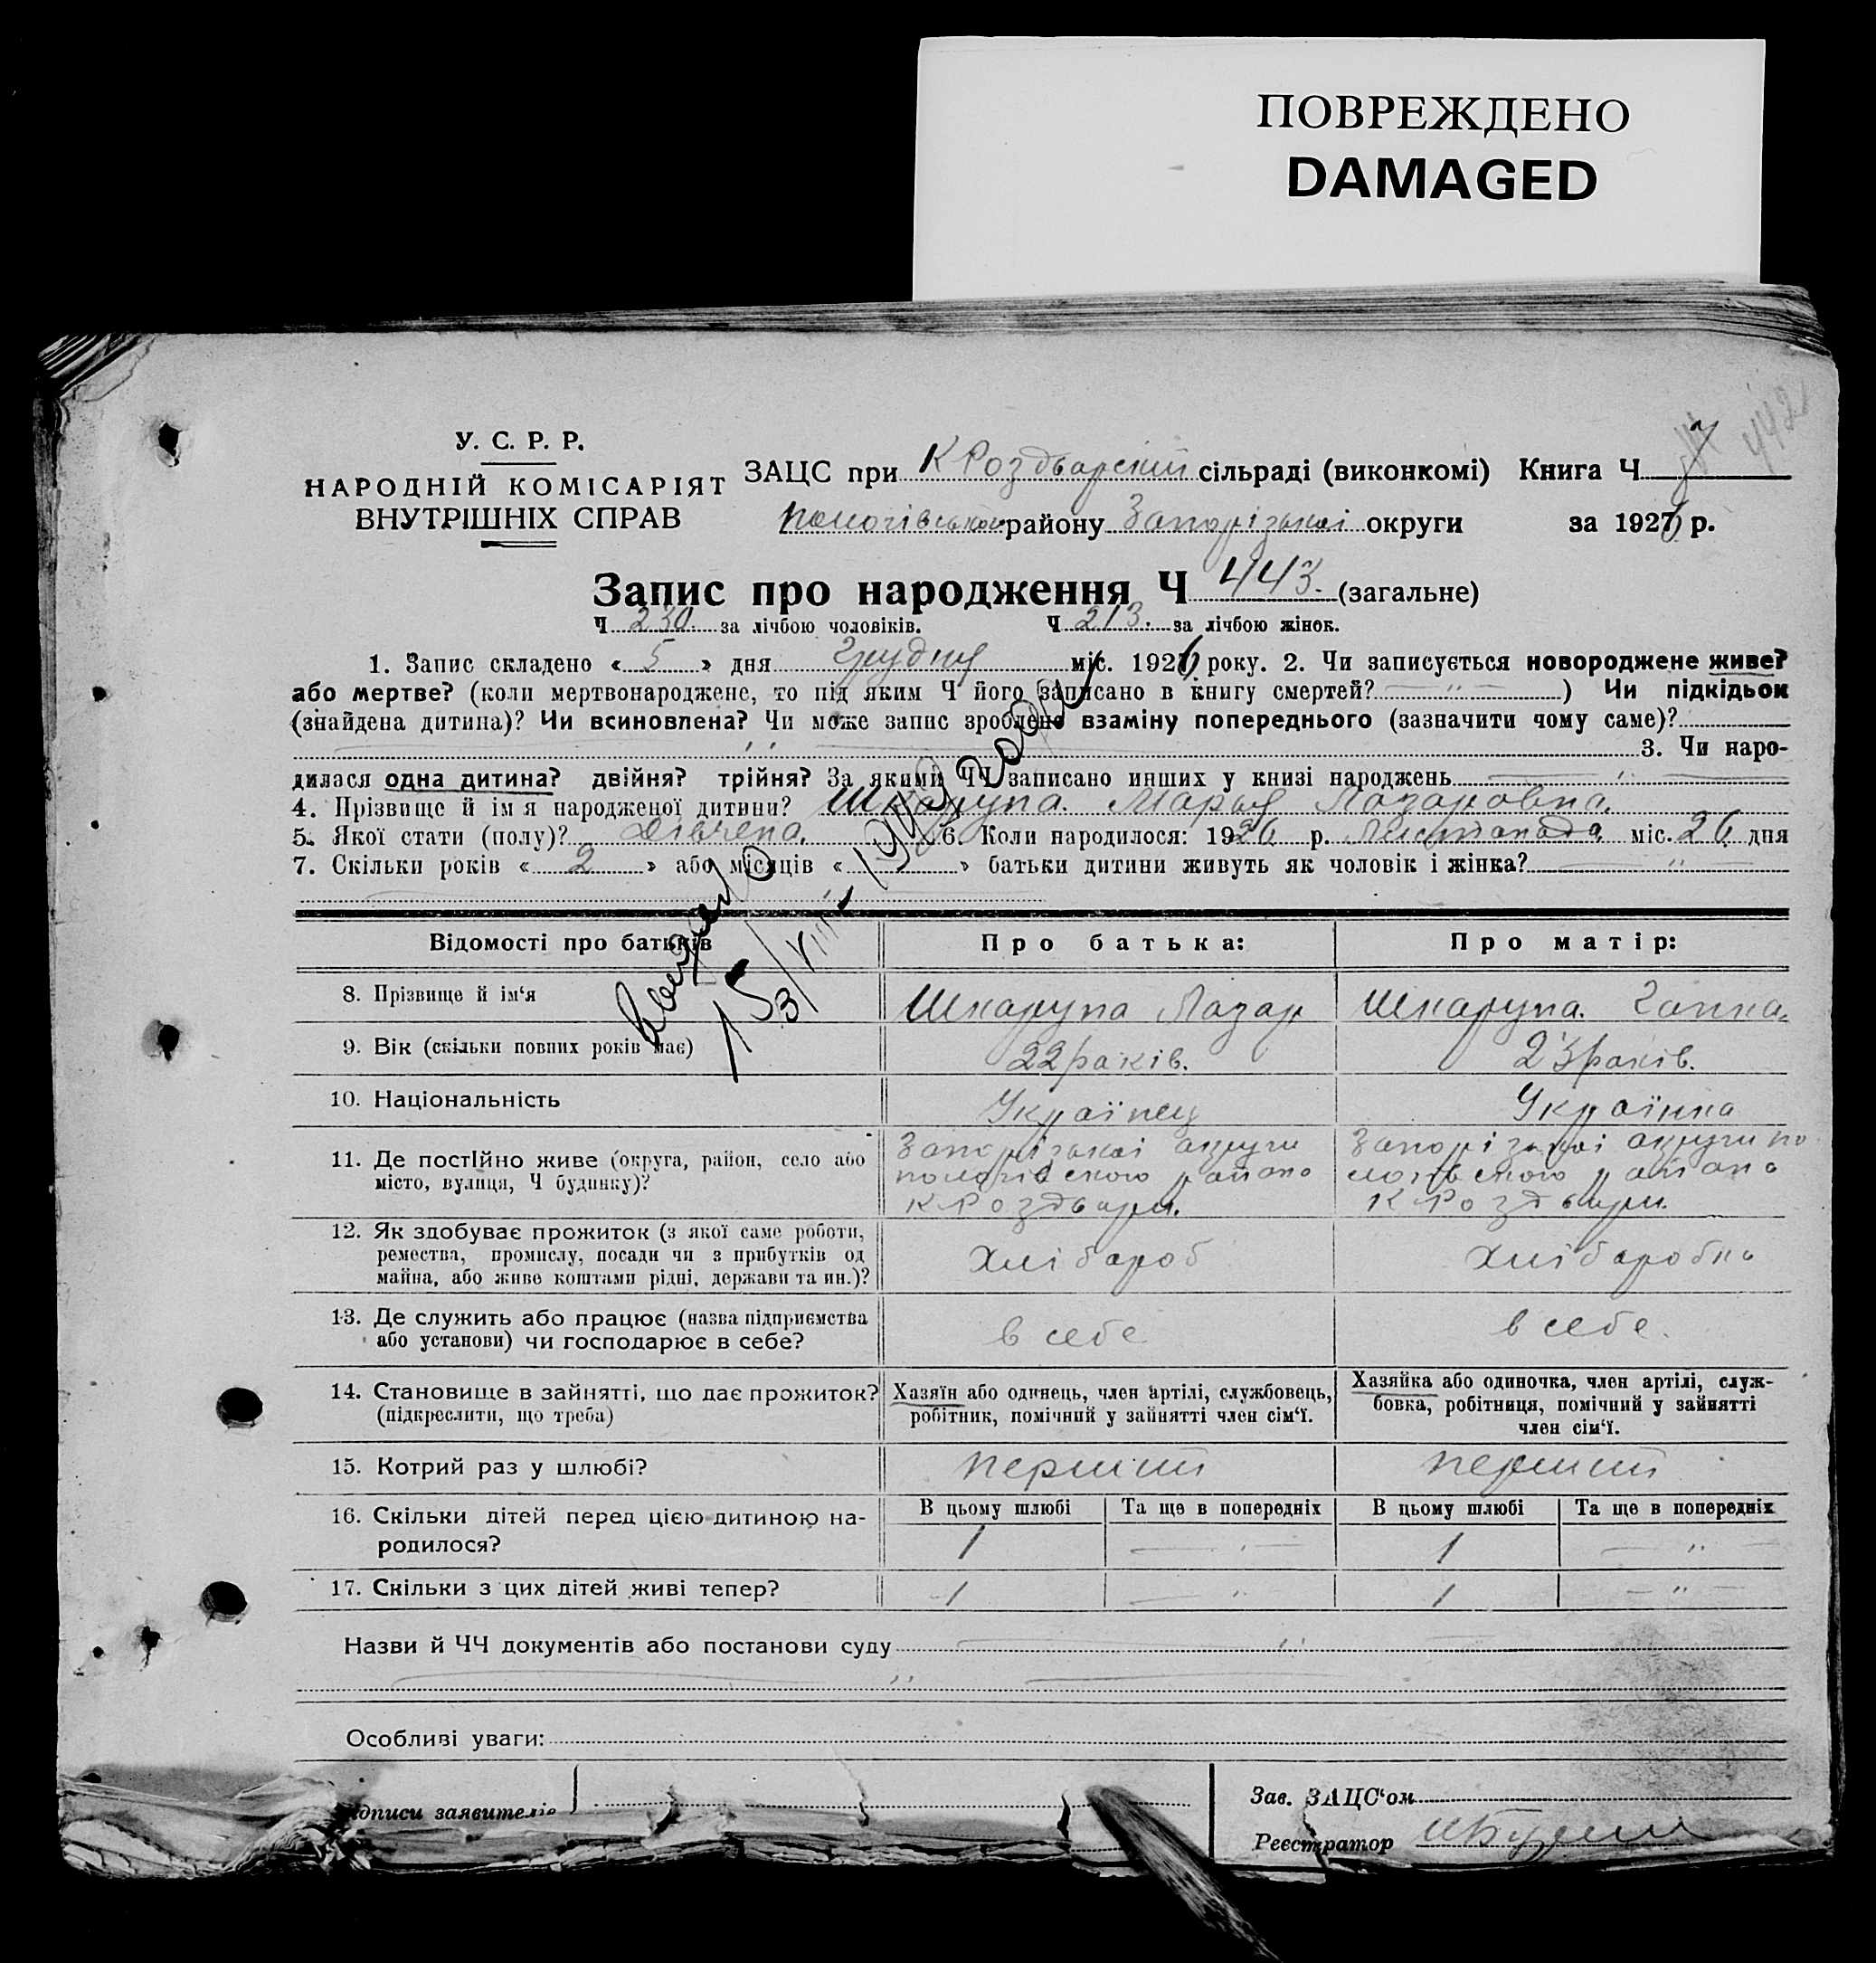 ПОВРЕЖДЕНО
DAMAGED
442
У. С. Р. Р.
НАРОДНІЙ КОМІСАРІЯТ
ВНУТРІШНІХ СПРАВ
ЗАЦС при К Роздварский сільраді (виконкомі) Книга Ч
Пологівського району Запорізької округи за 1926 р.
Запис про народження Ч 443. (загальне)
Ч 230. за лічбою чоловіків. Ч 213. за лічбою жінок.
1. Запис складено « 5 » дня Грудня міс. 1926 року. 2. Чи записується новороджене живе?
або мертве? (коли мертвонароджене, то під яким Ч його записано в книгу смертей? — „ — ) Чи підкідьок
(знайдена дитина)? Чи всиновлена? Чи може запис зроблено взаміну попереднього (зазначити чому саме)?
3. Чи наро-
дилася одна дитина? двійня? трійня? За якими ЧЧ записано инших у книзі народжень — „ —
4. Прізвище й ім я народженої дитини? Шкарупа. Марья Лазаровна.
5. Якої стати (полу)? Дівчена. 6. Коли народилося: 1926 р. Листопада міс. 26 дня
7. Скільки років « 2 » або місяців « » батьки дитини живуть як чоловік і жінка? — „ —
15/VIII 1942 года
Відомості про батьків Про батька: Про матір:
8. Прізвище й ім‘я Шкарупа Лазар Шкарупа. Ганна.
9. Вік (скільки повних років має) 22 раків. 23 раків.
10. Національність Українец Українка
11. Де постійно живе (округа, район, село або
місто, вулиця, Ч будинку)?
Запорізькаі округи
пологівского району
К Роздвари.
Запорізькаі округи по
логівского району
К Роздвари.
12. Як здобуває прожиток (з якої саме роботи,
ремества, промислу, посади чи з прибутків од
майна, або живе коштами рідні, держави та ин.)?
Хлібароб Хлібаробка
13. Де служить або працює (назва підприємства
або установи) чи господарює в себе?
в себе в себе.
14. Становище в зайнятті, що дає прожиток?
(підкреслити, що треба)
Хазяїн або одинець, член артілі, службовець,
робітник, помічний у зайнятті член сім‘ї.
Хазяйка або одиночка, член артілі, служ-
бовка, робітниця, помічний у зайнятті
член сім‘ї.
15. Котрий раз у шлюбі? перший перший
16. Скільки дітей перед цією дитиною на-
родилося?
В цьому шлюбі Та ще в попередніх В цьому шлюбі Та ще в попередніх
1 — „ — 1 — „ —
17. Скільки з цих дітей живі тепер? 1 — „ 1 — „ —
Назви й ЧЧ документів або постанови суду
Особливі уваги:
ідписи заявителів
Зав. ЗАЦС‘ом
Реєстратор